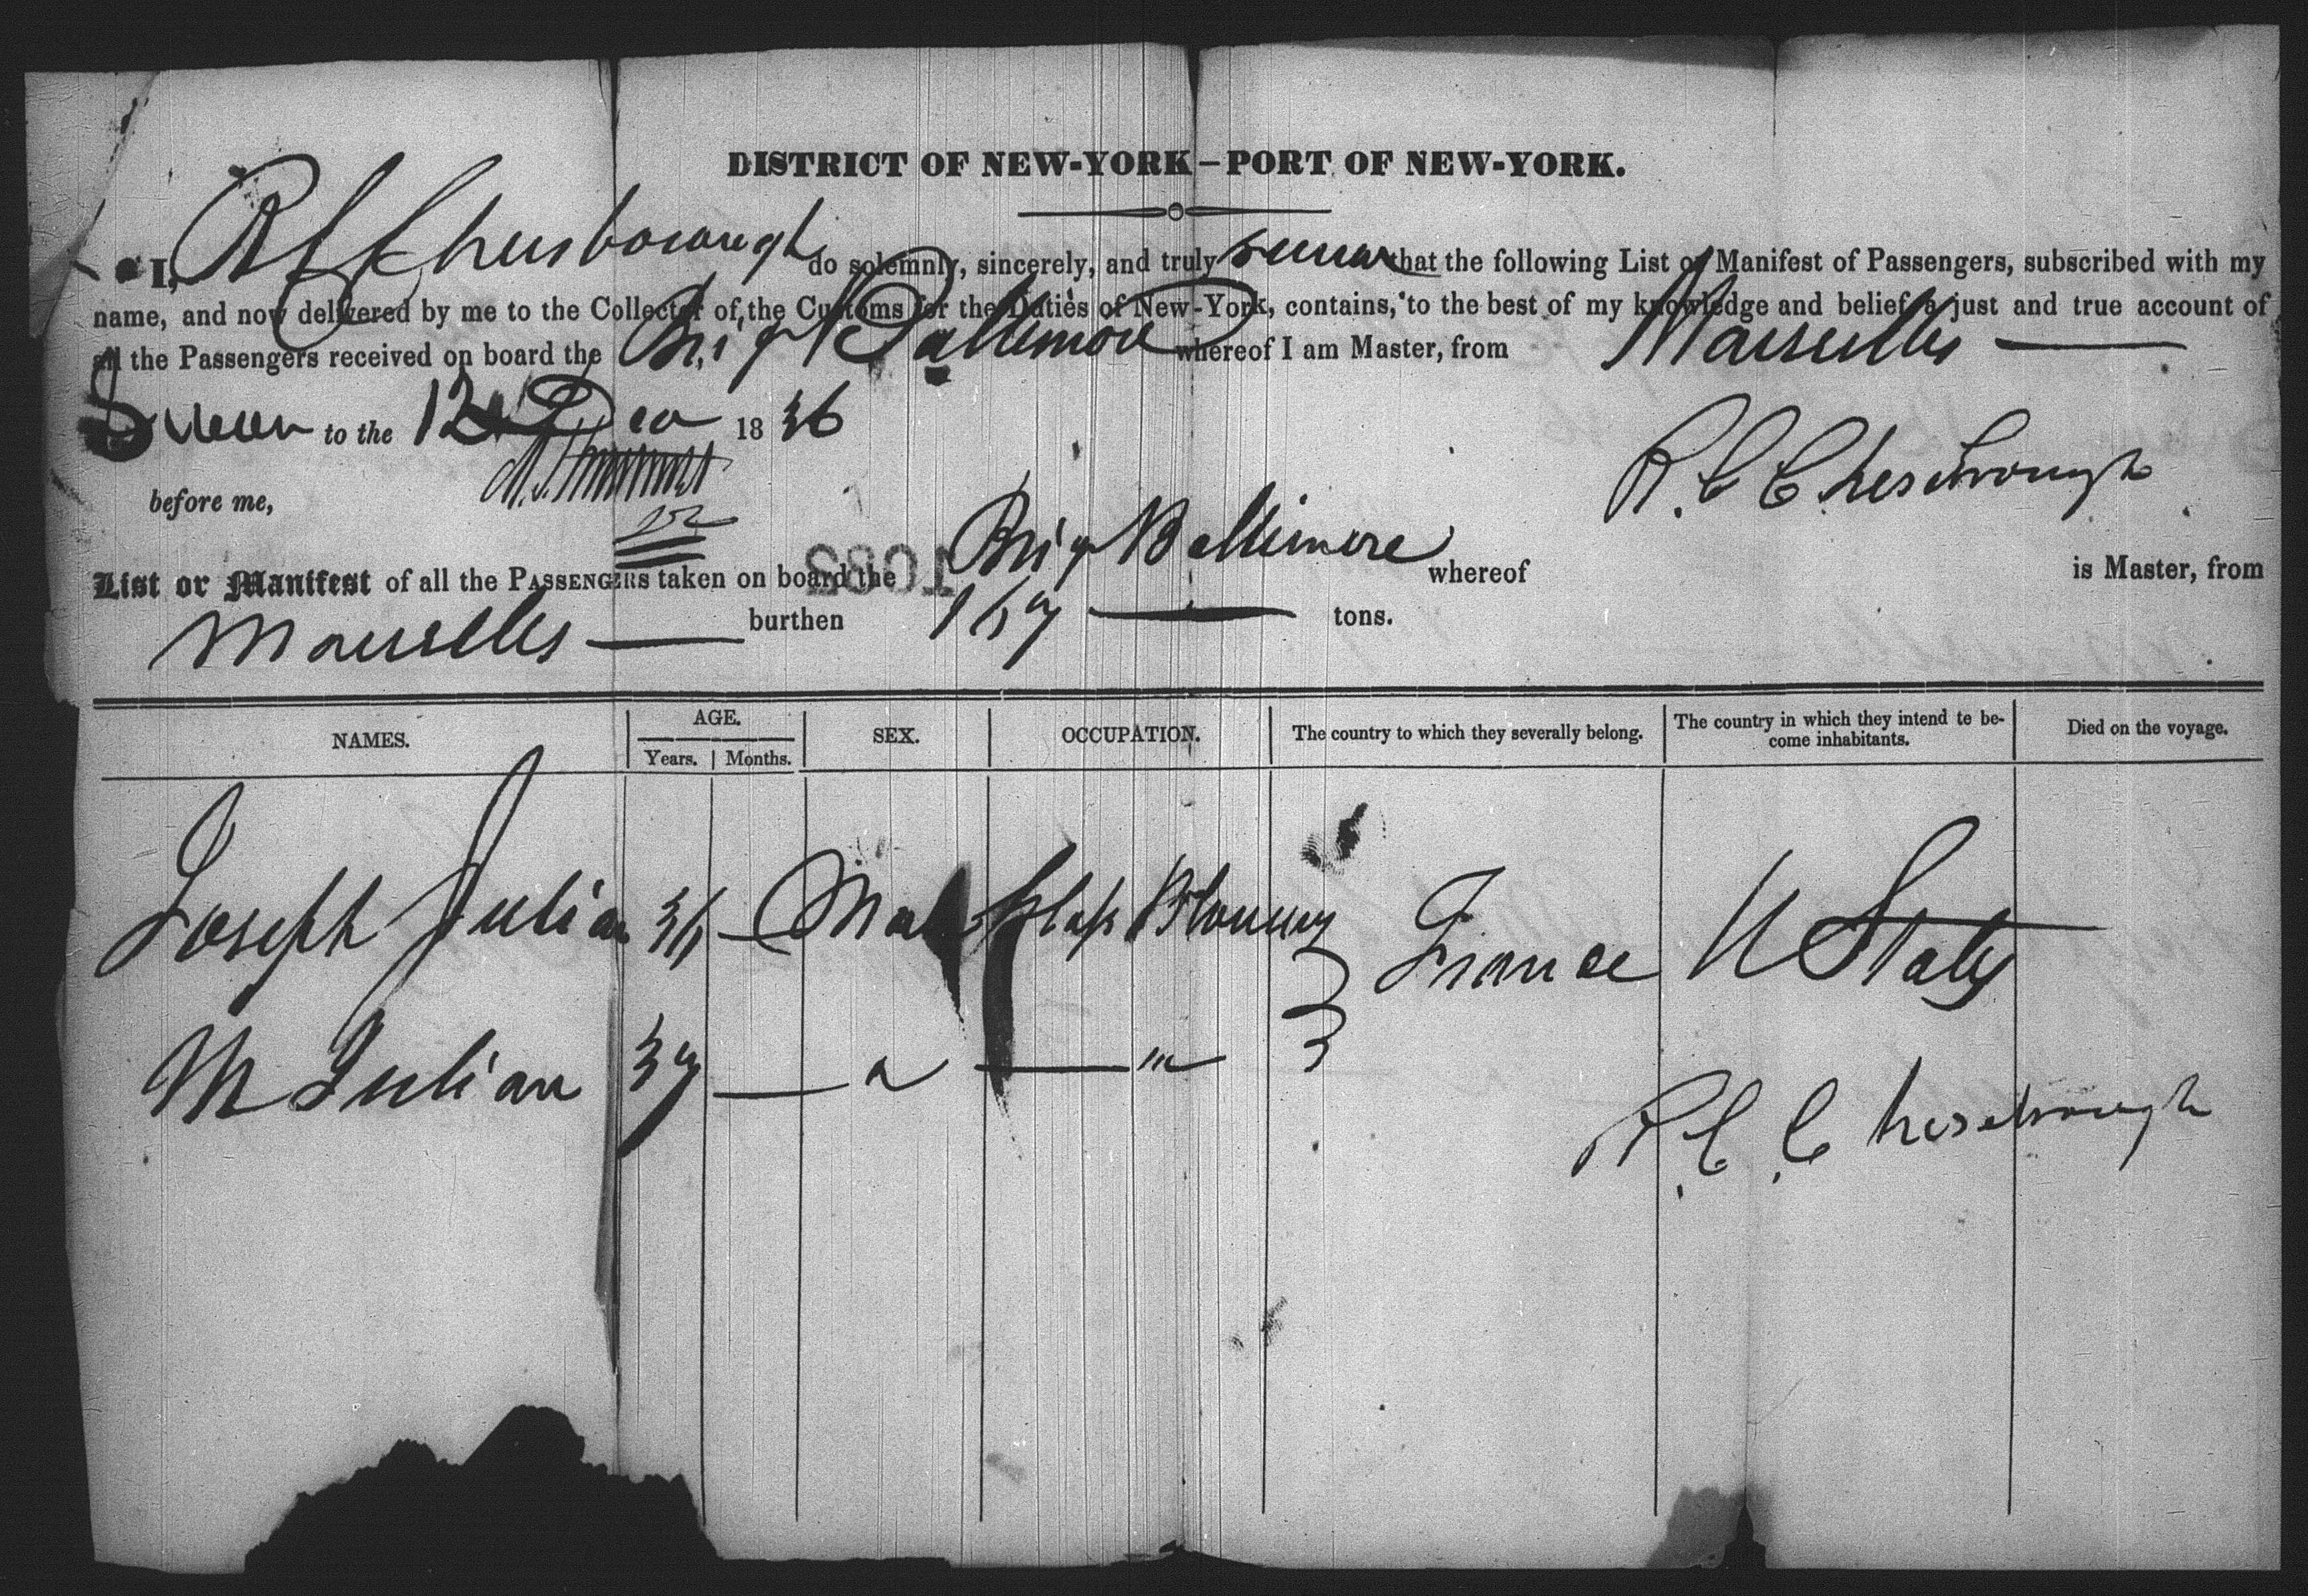 DISTRICT OF NEW-YORK — PORT OF NEW-YORK.
I, R C Chesborough do solemnly, sincerely, and truly swear that the following List or Manifest of Passengers, subscribed with my
name, and now delivered by me to the Collector of the Customs for the Duties of New-York, contains, to the best of my knowledge and belief, a just and true account of
all the Passengers received on board the Brig Baltimore whereof I am Master, from Marseilles
Sworn to the 12 Dec 1836
R. C Chesebrough
before me,
List or Manifest of all the PASSENGERS taken on board the Brig Baltimore whereof is Master, from
1085
Marseilles burthen 167 tons.
NAMES. AGE. SEX. OCCUPATION. The country to which they severally belong. The country in which they intend te be-
come inhabitants. Died on the voyage.
Years. Months.
Joseph Julian 36 Male Glass Blowers France U States
M Julian 37 " "
R. C. Chesebrough